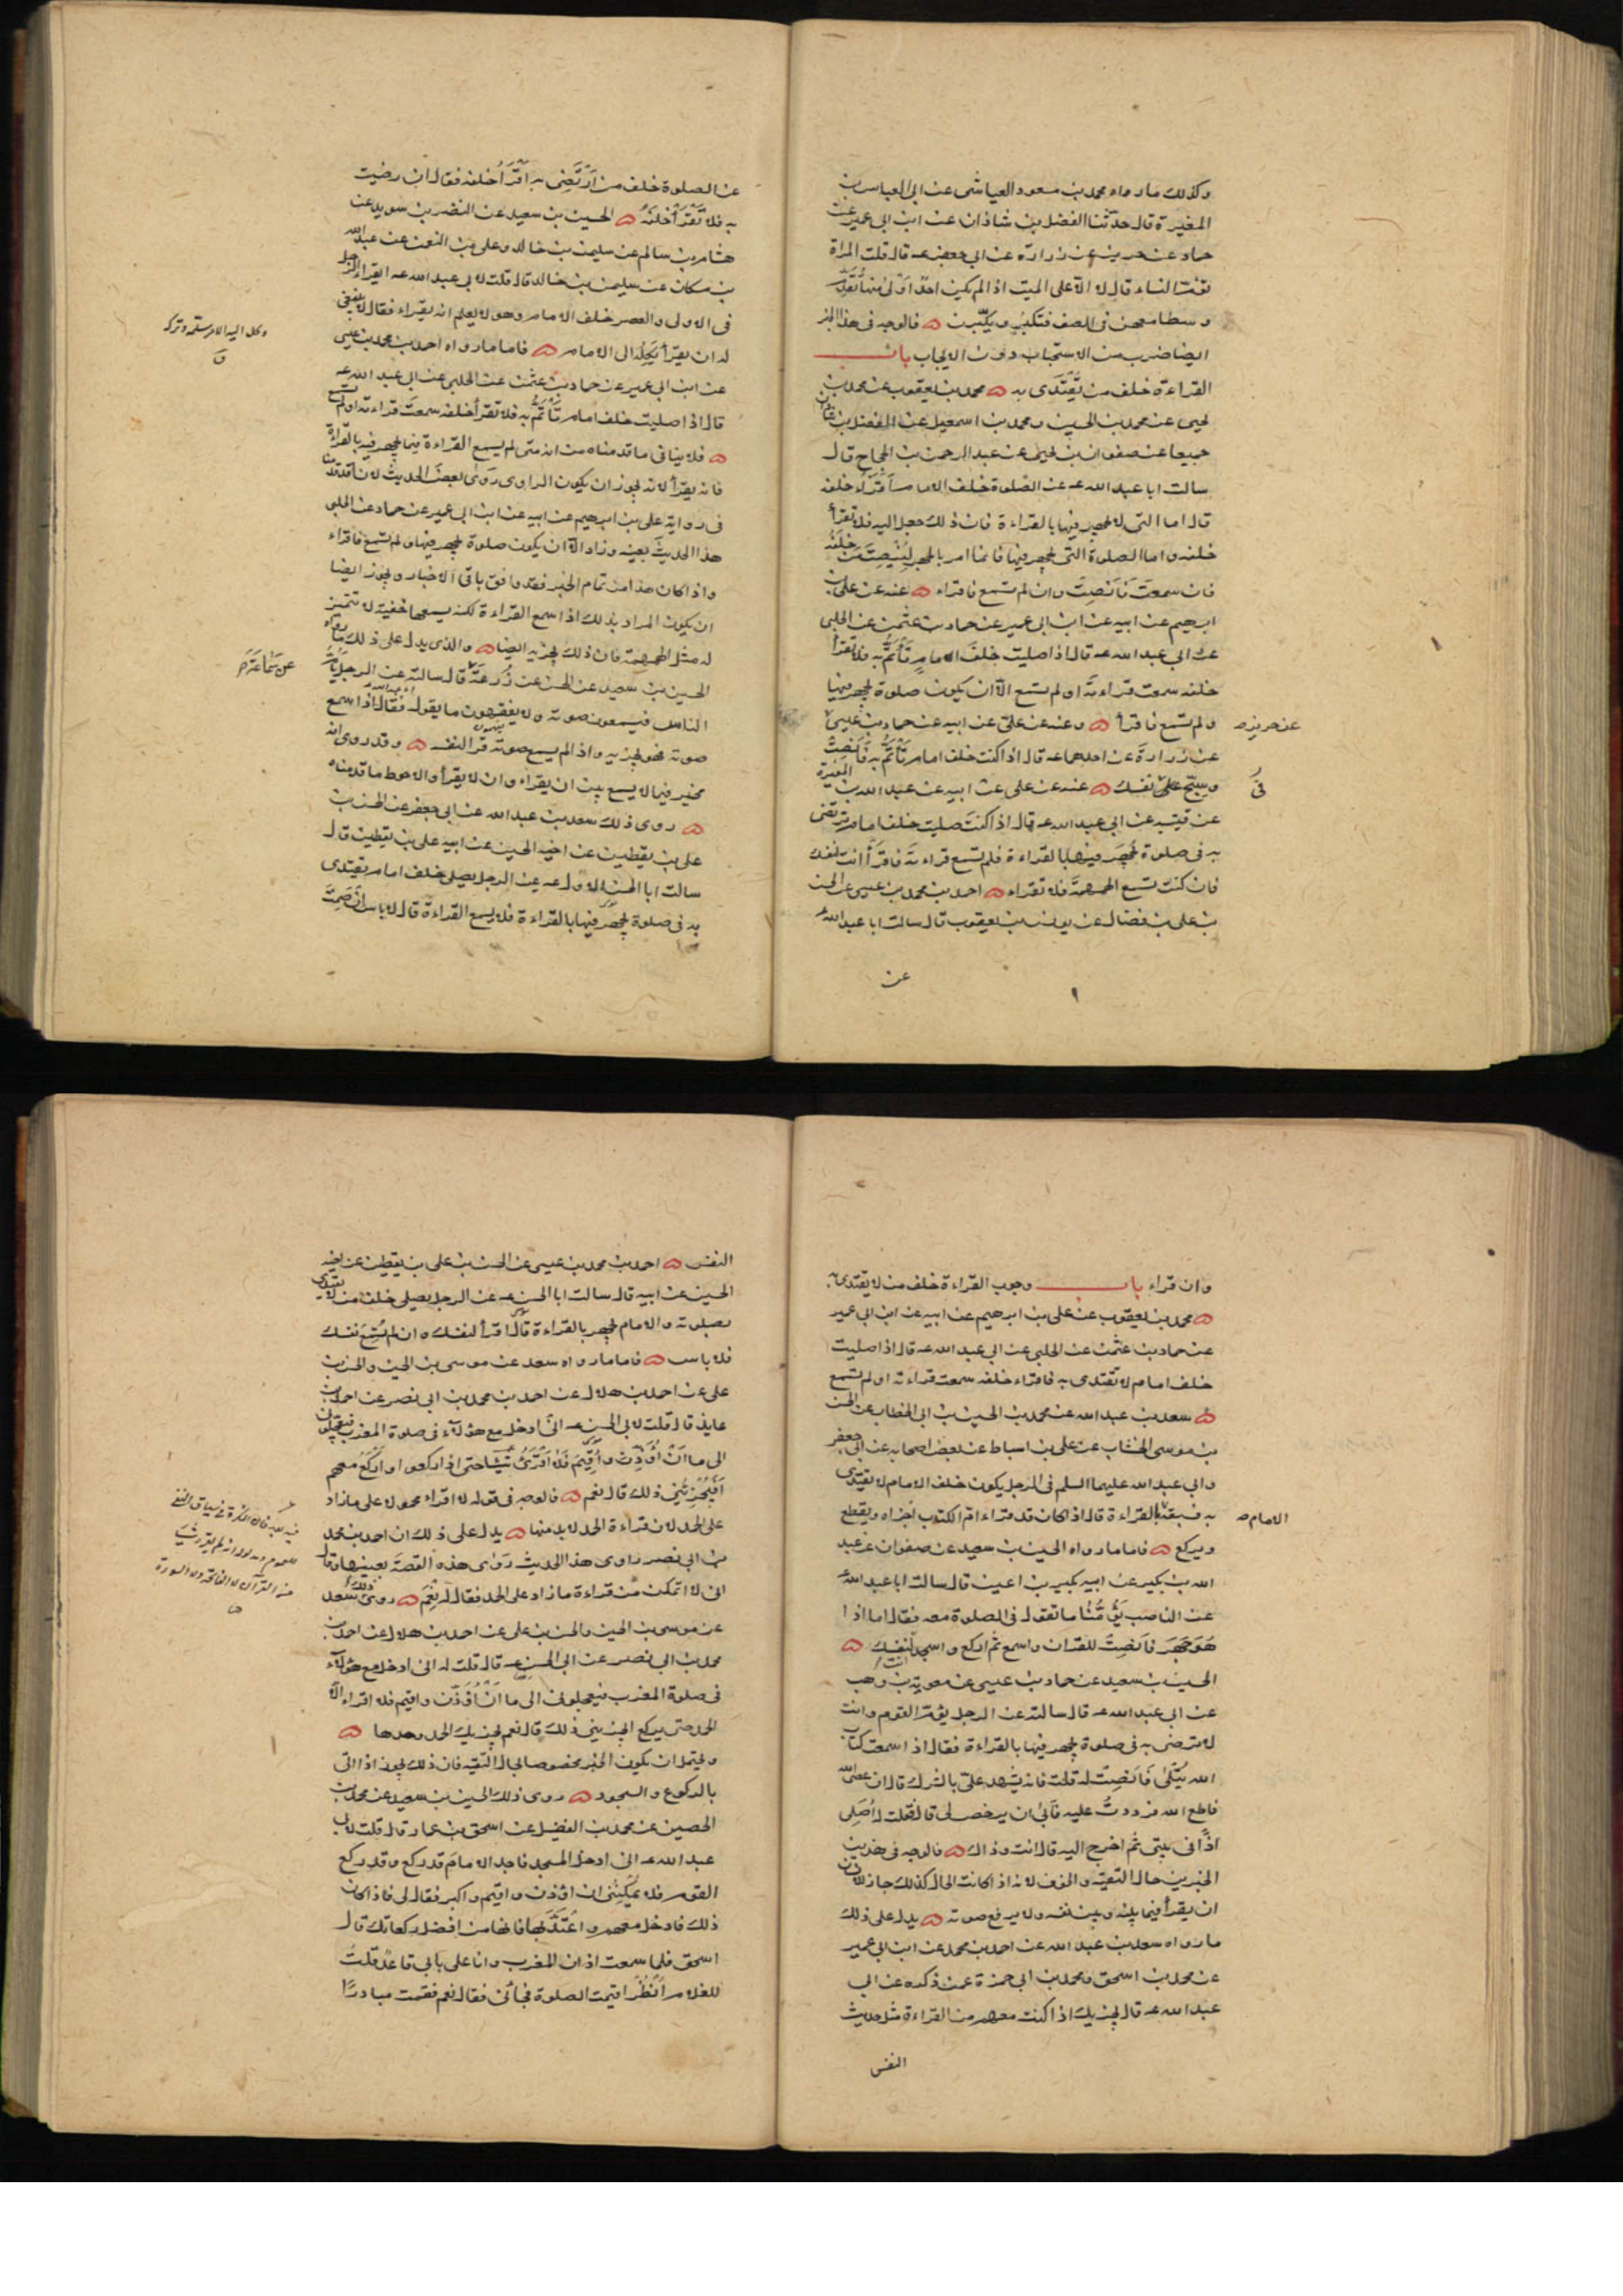 وكذلك ما رواه محمد بن مسعود العياشى عن ابى العباس بن
المغيرة قال حدثنا الفضل بن شاذان عن ابن ابى عمير عن
حماد عن حريز عن زرارة عن ابى جعفر عـ قال قلت المراة
تؤم النساء قال لا الا على الميت اذا لم يكن احدٌ اَوْلىٰ منها تقوم
وسطا معهن فى الصف فتكبّر ويكبّرن ۵ فالوجه فى هذا الخبر
ايضا ضرب من الاستحباب دون الايجاب باب
القراءة خلف من يُقْتَدى به ۵ محمد بن يعقوب عن محمد بن
يحيى عن محمد بن الحسين ومحمد بن اسمعيل عن الفضل بن شاذان
جميعا عن صفوان بن يحيى عن عبد الرحمن بن الحجاج قال
سالت ابا عبد الله عـ عن الصلوة خلف الامام اَقْرَأُ خلفه
قال اما التى لا يجهر فيها بالقراءة فان ذلك جعل اليه فلا تقرأ
خلفه واما الصلوة التى يجهر فيها فانما امر بالجهر لِيُنْصِتَ مَن خَلْفَهُ
فان سمعتَ فَاَنْصِتْ وان لم تسمع فاقراء ۵ عنه عن على بن
ابرهيم عن ابيه عن ابن ابى عمير عن حماد بن عثمن عن الحلبى
عن ابى عبد الله عـ قال اذا صليت خلفَ الامامِ تَأْتَمُّ به فلا تقرأ
خلفه سمعت قراءته او لم تسمع الا ان يكون صلوة يجهر فيها
ولم تسمع فاقرأ ۵ وعنه عن علىّ عن ابيه عن حماد بن عيسىٰ
عن حريز صـ
عن زرارة عن احدهما عـ قال اذا كنت خلف امام تَأْتَمُّ به فَاَنْصِتْ
وسبّح علىٰ نفسك ۵ عنه عن على عن ابيه عن عبد الله بن المغيرة
فى
عن قتيبه عن ابى عبد الله عـ قال اذا كنتَ صليت خلف امام ترتضى
به فى صلوة يُجهَر فيها بالقراءة فلم تسمع قراءتهَ فاقرَأ انت لنفسك
فان كنت تسمع الهمهمةَ فلا تقراء ۵ احمد بن محمد بن عيسى عن الحسن
بن على بن فضال عن يونس بن يعقوب قال سالت ابا عبد الله عـ
عن
عن الصلوة خلف من اَرْتَضِى به اَقْرَأُ خلفه فقال ان رضيت
به فلا تَقْرَأْ خَلْفَهُ ۵ الحسين بن سعيد عن النضر بن سويد عن
هشام بن سالم عن سليمن بن خالد وعلى بن النعمن عن عبد الله
بن مسكان عن سليمن بن خالد قال قلت لابى عبد الله عـ ايقراء الرجل
فى الاولى والعصر خلف الامام وهو لا يعلم انه يقراء فقال لا ينبغى
له ان يقرَأ يَكِلُه الى الامام ۵ فاما ما رواه احمد بن محمد بن عيسى
وكل اليه الامر سلّمه وتركه
ق
عن ابن ابى عمير عن حماد بن عثمن عن الحلبى عن ابى عبد الله عـ
قال اذا صليت خلف امام تَأْتَمُّ به فلا تقرأ خلفه سمعتَ قراءته او لم تسمع
۵ فلا ينافى ما قدمناه من انه متى لم يسمع القراءة فيما يجهر فيه بالقراءة
فانه يقرأ لانه يجوز ان يكون الراوى رَوىٰ بعضَ الحديث لان قد قدمنا
فى رواية على بن ابرهيم عن ابيه عن ابن ابى عمير عن حماد عن الحلبى
هذا الحديثَ بعينه وزاد الا ان يكون صلوة يجهر فيها ولم تسمع فاقراء
واذا كان هذا من تمام الخبر فقد وافق باقى الاخبار ويجوز ايضا
ان يكون المراد بذلك اذا سمع القراءة لكنه يسمعها خفية لا تتميز
له مثل الهمهمة فان ذلك يجزيه ايضا ۵ والذى يدل على ذلك ما رواه
الحسين بن سعيد عن الحسن عن زُرعَةَ قال سالته عن الرجل يَاُمُّ
عن سَمَاعَةَ صـ
الناس فيسمعون صوته ولا يفقهون ما يقول فقال اذا سمع
صوته فهو يجزيه واذا لم يسمع صوته قرأ لنفسه ۵ وقد روى انه
مخير فيما لا يسمع بين ان يقراء وان لا يقرأ والاحوط ما قدمناه
۵ روى ذلك سعد بن عبد الله عن ابى جعفر عن الحسن بن
على بن يقطين عن اخيه الحسين عن ابيه على بن يقطين قال
سالت ابا الحسن الاول عـ عن الرجل يصلى خلف امام يقتدى
به فى صلوة يجهر فيها بالقراءة فلا يسمع القراءة قال لا باس ان صَمَتَ
وان قراء باب وجوب القراءة خلف من لا يقتدى به
۵ محمد بن يعقوب عن على بن ابرهيم عن ابيه عن ابن ابى عمير
عن حماد بن عثمن عن الحلبى عن ابى عبد الله عـ قال اذا صليت
خلف امام لا تقتدى به فاقراء خلفه سمعت قراءته او لم تسمع
۵ سعد بن عبد الله عن محمد بن الحسين بن ابى الخطاب عن الحسن
بن موسى الخشاب عن على بن اسباط عن بعض اصحابه عن ابى جعفر
وابى عبد الله عليهما السلم فى الرجل يكون خلف الامام لا يقتدى
به فيسبقه بالقراءة قال اذا كان قد قراء ام الكتاب اجزاه ويقطع
الامام صـ
ويركع ۵ فاما ما رواه الحسين بن سعيد عن صفوان عن عبد
الله بن بكير عن ابيه بكير بن اعين قال سالت ابا عبد الله عـ
عن الناصب يَؤُمُّنا ما تقول فى الصلوة معه فقال اما اذا
هُوَ جَهَرَ فَانصِتْ للقران واسمع ثم اركع واسجد لنفسك ۵
انت
الحسين بن سعيد عن حماد بن عيسى عن معوية بن وهب
عن ابى عبد الله عـ قال سالته عن الرجل يؤم القوم وانت
لا ترضى به فى صلوة يجهر فيها بالقراءة فقال اذا سمعت كتاب
الله يُتْلىٰ فَاَنْصِتْ له قلت فانه يشهد علىّ بالشرك قال ان عصى الله
فاطع الله فرددتُ عليه فابىٰ ان يرخص لى قال فقلت له اُصَلِى
اذًا فى بيتى ثم اخرج اليه قال انت وذاك ۵ فالوجه فى هذين
الخبرين حال التقيه والخوف لانه اذا كانت الحال كذلك جاز للانسان
ان يقرأ فيما بينه وبين نفسه ولا يرفع صوته ۵ يدل على ذلك
ما رواه سعد بن عبد الله عن احمد بن محمد عن ابن ابى عمير
عن محمد بن اسحق ومحمد بن ابى حمزة عمن ذكره عن ابى
عبد الله عـ قال يجزيك اذا كنت معهم من القراءة مثل حديث
النفس
النفس ۵ احمد بن محمد بن عيسى عن الحسن بن على بن يقطين عن اخيه
الحسين عن ابيه قال سالت ابا الحسن عـ عن الرجل يصلى خلف من لا يقتدى
بصلوته والامام يجهر بالقراءة قال اقرأ لنفسك وان لم تُسْمِعْ نفسك
فلا باس ۵ فاما ما رواه سعد عن موسى بن الحسن والحسن بن
على عن احمد بن هلال عن احمد بن محمد بن ابى نصر عن احمد بن
عايذ قال قلت لابى الحسن عـ انى ادخل مع هؤلآء فى صلوة المغرب فيعجلونى
الى ما اَنْ اُؤَذِّنَ واُقِيْمَ فلا اَقْرَئُ شيئا حتى اذا ركعوا واركعُ معهم
اَفَيُجْزِئُنِى ذلك قال نعم ۵ فالوجه فى قوله لا اقراء محمول على ما زاد
على الحمد لان قراءة الحمد لا بد منها ۵ يدل على ذلك ان احمد بن محمد
بن ابى نصر راوى هذا الحديث رَوٰى هذه القصة بعينها وقال
انى لا اتمكن من قراءة ما زاد على الحمد فقال له نعم ۵ روىٰ ذلك سعد
عن موسى بن الحسن والحسن بن على عن احمد بن هلال عن احمد بن
محمد بن ابى نصر عن ابى الحسن عـ قال قلت له انى ادخل مع هؤلآء
فى صلوة المغرب فيعجلونى الى ما اَنْ اُؤَذِّن واقيم فلا اقراء الا
الحمد حتى يركع ايجزينى ذلك قال نعم يجزيك الحمد وحدها ۵
ويحتمل ان يكون الخبر مخصوصا بحال التقيه فان ذلك يجوز اذا اتى
بالركوع والسجود ۵ روى ذلك الحسين بن سعيد عن محمد بن
الحصين عن محمد بن الفضيل عن اسحق بن عمار قال قلت لابى
عبد الله عـ انى ادخل المسجد فاجد الامام قد ركع وقد ركع
القوم فلا يمكِنُنى ان اؤذن واقيم واكبر فقال لى فاذا كان
ذلك فادخل معهم واعْتَدَّ بها فانها من افضل ركعاتك قال
اسحق فلما سمعت اذان المغرب وانا على بابى قاعد قلت
للغلام اُنْظُرْ اقيمت الصلوة فجأنى فقال نعم فقمت مبادرًا